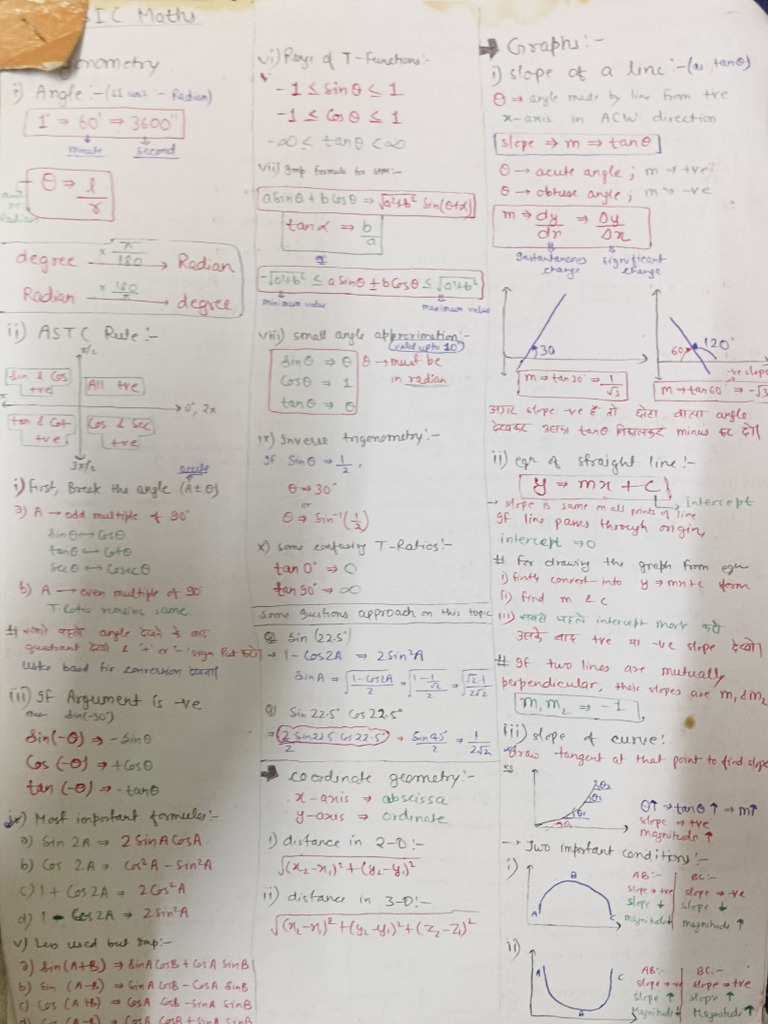 SIC Maths
onometry
i) Angle :- (SI unit :- Radian)
1° ⇒ 60' ⇒ 3600"
minute second
θ ⇒ l/r
Radian
degree × π/180 → Radian
Radian × 180/π → degree
ii) ASTC Rule :-
π/2
Sin & Cos +ve
All +ve
0°, 2π
tan & Cot +ve
Cos & Sec +ve
3π/2
acute
i) first, Break the angle (A ± θ)
a) A → odd multiple of 90°
Sinθ ↔ Cosθ
tanθ ↔ Cotθ
Secθ ↔ Cosecθ
b) A → even multiple of 90°
T-Ratio remains same
# सबसे पहले angle देखने के बाद
quadrant देखो & '+' or '-' sign Put करो
उसके बाद for conversion देखना
iii) If Argument is -ve
Sin(-30°)
Sin(-θ) ⇒ -Sinθ
Cos(-θ) ⇒ +Cosθ
tan(-θ) ⇒ -tanθ
iv) Most important formulae :-
a) Sin 2A ⇒ 2 SinA CosA
b) Cos 2A ⇒ Cos²A - Sin²A
c) 1 + Cos 2A ⇒ 2Cos²A
d) 1 - Cos 2A ⇒ 2Sin²A
v) Less used but Imp :-
a) Sin(A+B) ⇒ SinA CosB + CosA SinB
b) Sin (A-B) ⇒ SinA CosB - CosA SinB
c) Cos (A+B) ⇒ CosA CosB - SinA SinB
d) Cos (A-B) ⇒ CosA CosB + SinA SinB
vi) Range of T-Functions :-
-1 ≤ Sinθ ≤ 1
-1 ≤ Cosθ ≤ 1
-∞ ≤ tanθ < ∞
vii) Imp formula for SHM :-
aSinθ + bCosθ ⇒ √a²+b² Sin(θ+α)
tanα ⇒ b/a
-√a²+b² ≤ aSinθ ± bCosθ ≤ √a²+b²
minimum value maximum value
viii) small angle approximation :-
(valid upto 10°)
Sinθ ⇒ θ
Cosθ ⇒ 1
tanθ ⇒ θ
θ → must be
in radian
ix) Inverse trigonometry :-
If Sinθ ⇒ 1/2,
θ ⇒ 30°
or
θ ⇒ Sin⁻¹(1/2)
x) some confusing T-Ratios :-
tan 0° ⇒ 0
tan 90° ⇒ ∞
Some questions approach on this topic
Q Sin (22.5°)
→ 1 - Cos2A ⇒ 2Sin²A
SinA ⇒ √(1-Cos2A)/2 ⇒ √(1-1/√2)/2 ⇒ √(√2-1)/2√2
Q) Sin 22.5° Cos 22.5°
⇒ 2Sin22.5 Cos 22.5°/2 ⇒ Sin45°/2 ⇒ 1/2√2
→ Coordinate geometry :-
x-axis ⇒ abscissa
y-axis ⇒ ordinate
i) distance in 2-D :-
√(x₂-x₁)² + (y₂-y₁)²
ii) distance in 3-D :-
√(x₂-x₁)² + (y₂-y₁)² + (z₂-z₁)²
→ Graphs :-
i) slope of a line :- (as tanθ)
θ → angle made by line from +ve
x-axis in ACW direction
slope ⇒ m ⇒ tanθ
θ → acute angle ; m → +ve
θ → obtuse angle ; m → -ve
m ⇒ dy/dx ⇒ Δy/Δx
Instantaneous change
significant change
30
60° 120°
-ve slope
m ⇒ tan30° ⇒ 1/√3
m ⇒ tan60° ⇒ -√3
अगर slope -ve है तो छोटा वाला angle
देखकर उसका tanθ निकालकर minus कर दो।
ii) eqn of straight line :-
y ⇒ mx + c
Intercept
→ slope is same on all points of line
If line passes through origin,
intercept ⇒ 0
# For drawing the graph from eqn
i) firstly convert into y ⇒ mx+c form
ii) find m & c
iii) सबसे पहले intercept mark करो
उसके बाद +ve या -ve slope देखो।
# If two lines are mutually
perpendicular, their slopes are m₁ & m₂
m₁m₂ ⇒ -1
iii) slope of curve :
draw tangent at that point to find slope
θ₁ θ₂
θ↑ → tanθ↑ → m↑
slope → +ve
magnitude ↑
→ Two important conditions :-
i)
A B C
AB :-
slope → +ve
slope ↓
magnitude ↓
BC :-
slope → -ve
slope ↓
magnitude ↑
ii)
A B C
AB :-
slope → -ve
slope ↑
Magnitude ↓
BC :-
slope → +ve
slope ↑
Magnitude ↑